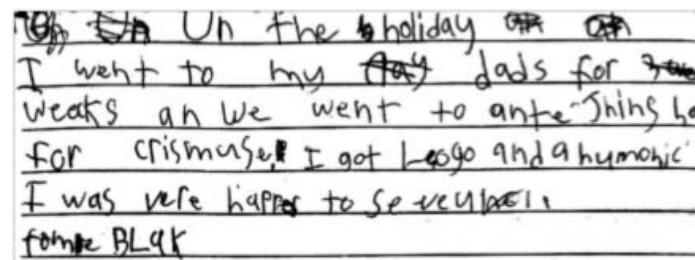 Un the holiday
I went to my dads for
weaks an We went to ante Jhins ho
for crismuse, I got Leogo and a humonic
I was vere happe to se
fome BLak